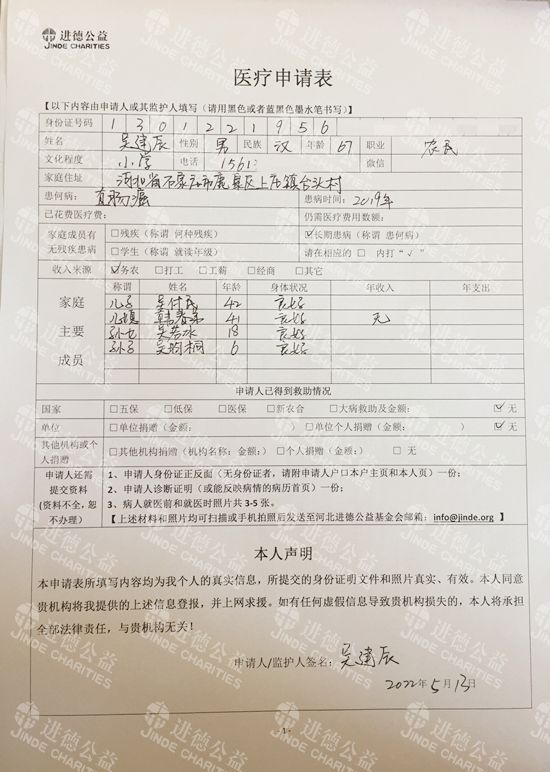 进德公益
JINDE CHARITIES
医疗申请表
【以下内容由申请人或其监护人填写（请用黑色或者蓝黑色墨水笔书写）】
身份证号码 1 3 0 1 2 2 1 9 5 6
姓名 吴建辰 性别 男 民族 汉 年龄 67 职业 农民
文化程度 小学 电话 1561 微信
家庭住址 河北省石家庄市鹿泉区上庄镇台头村
患何病: 直肠癌 患病时间: 2019年
已花费医疗费: 仍需医疗费用数额:
家庭成员有无残疾患病 □残疾（称谓 何种残疾） ☑长期患病（称谓 患何病）
□学生（称谓 就读年级） 请在相应的 □ 内打“√”
收入来源 ☑务农 □打工 □工薪 □经商 □其它
家庭主要成员 称谓 姓名 年龄 身体状况 年收入 年支出
儿子 吴付民 42 良好
儿媳 41 良好 无
孙女 吴若水 18 良好
孙子 吴昀桐 6 良好
申请人已得到救助情况
国家 □五保 □低保 □医保 □新农合 □大病救助及金额: ☑无
单位 □单位捐赠（金额: ） □单位个人捐赠（金额: ） ☑无
其他机构或个人捐赠 □其他机构捐赠（机构名称: 金额:） □个人捐赠（金额:） □ 无
申请人还需提交资料（资料不全，恕不办理）
1、申请人身份证正反面（无身份证者，请附申请人户口本户主页和本人页）一份;
2、申请人诊断证明（或能反映病情的病历首页）一份;
3、病人就医前和就医时照片共 3-5 张。
【上述材料和照片均可扫描或手机拍照后发送至河北进德公益基金会邮箱: info@jinde.org 】
本人声明
本申请表所填写内容均为我个人的真实信息，所提交的身份证明文件和照片真实、有效。本人同意
贵机构将我提供的上述信息登报，并上网求援。如有任何虚假信息导致贵机构损失的，本人将承担
全部法律责任，与贵机构无关!
申请人/监护人签名: 吴建辰
2022年5月13日
1